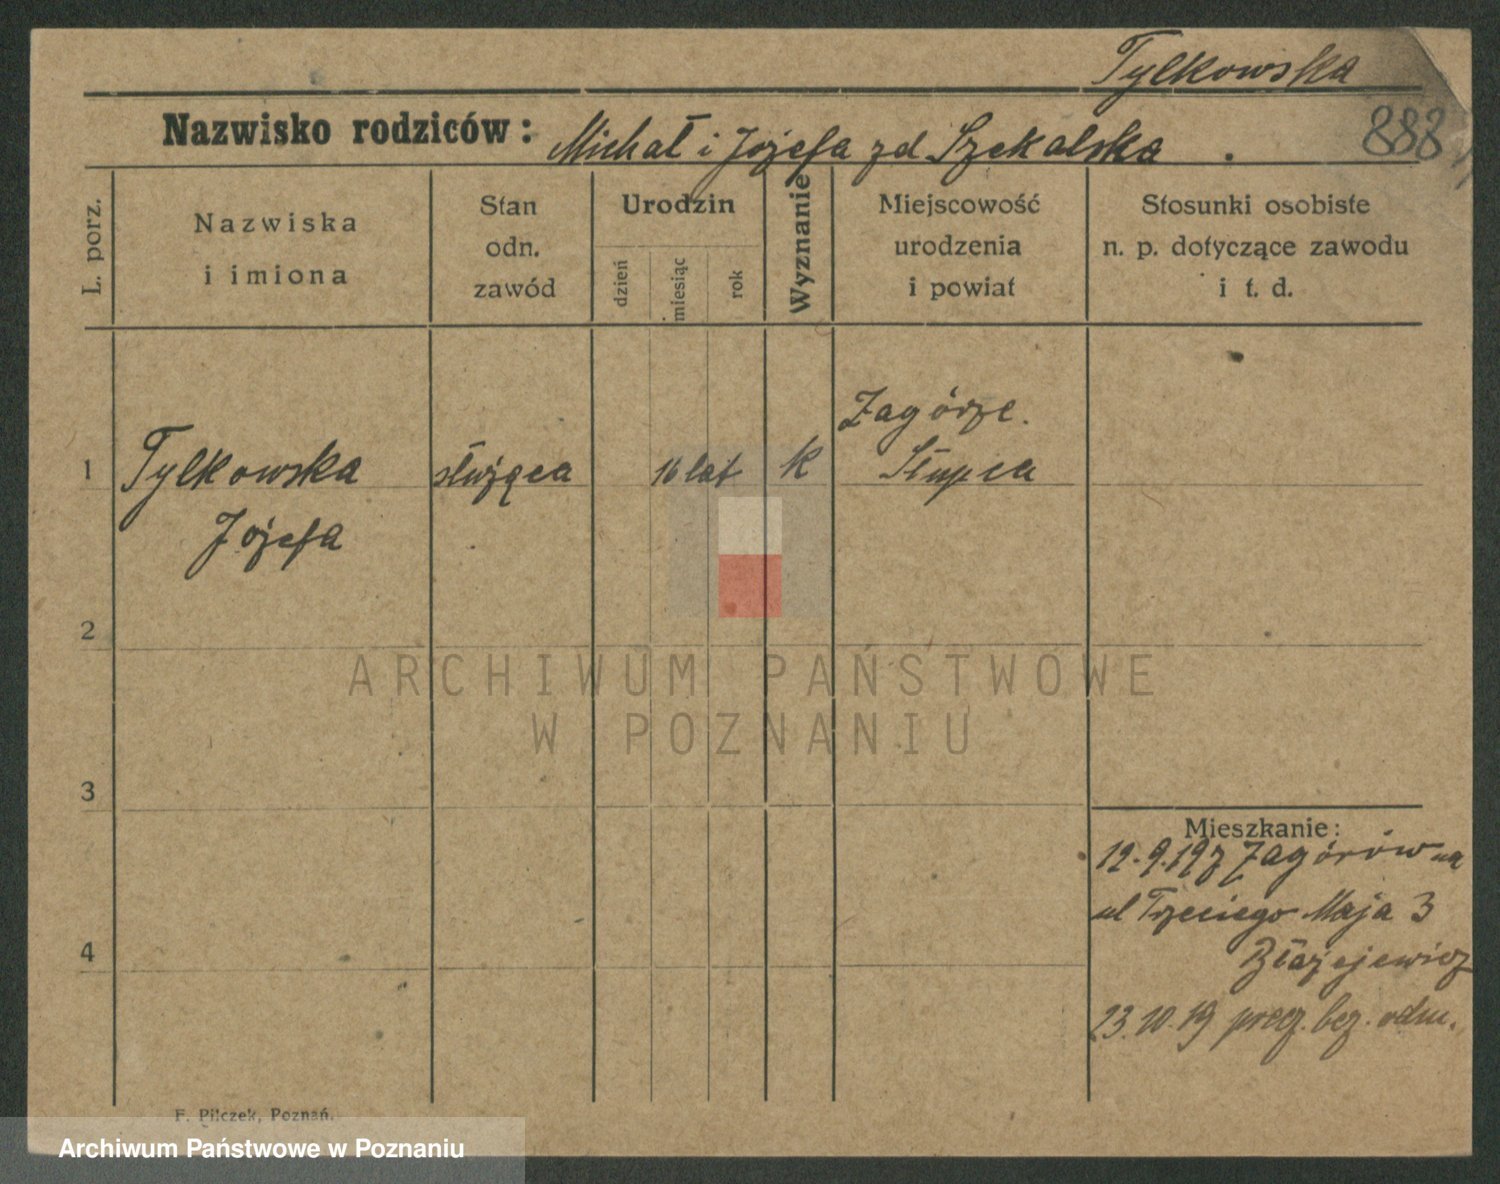 Tylkowska
Nazwisko rodziców: Michał i Józefa zd Szekalska.
888
L. porz.
Nazwiska
i imiona
Stan
odn.
zawód
Urodzin
dzień
miesiąc
rok
Wyznanie
Miejscowość
urodzenia
i powiat
Stosunki osobiste
n. p. dotyczące zawodu
i t. d.
1
Tylkowska
Józefa
służąca
16 lat
k
Zagórze.
Słupca
2
3
4
Mieszkanie:
12.9.19 z Zagórów na
ul Trzeciego Maja 3
Błażejewicz
23.10.19 bez. odm.
F. Pilczek, Poznań.
ARCHIWUM PAŃSTWOWE
W POZNANIU
Archiwum Państwowe w Poznaniu